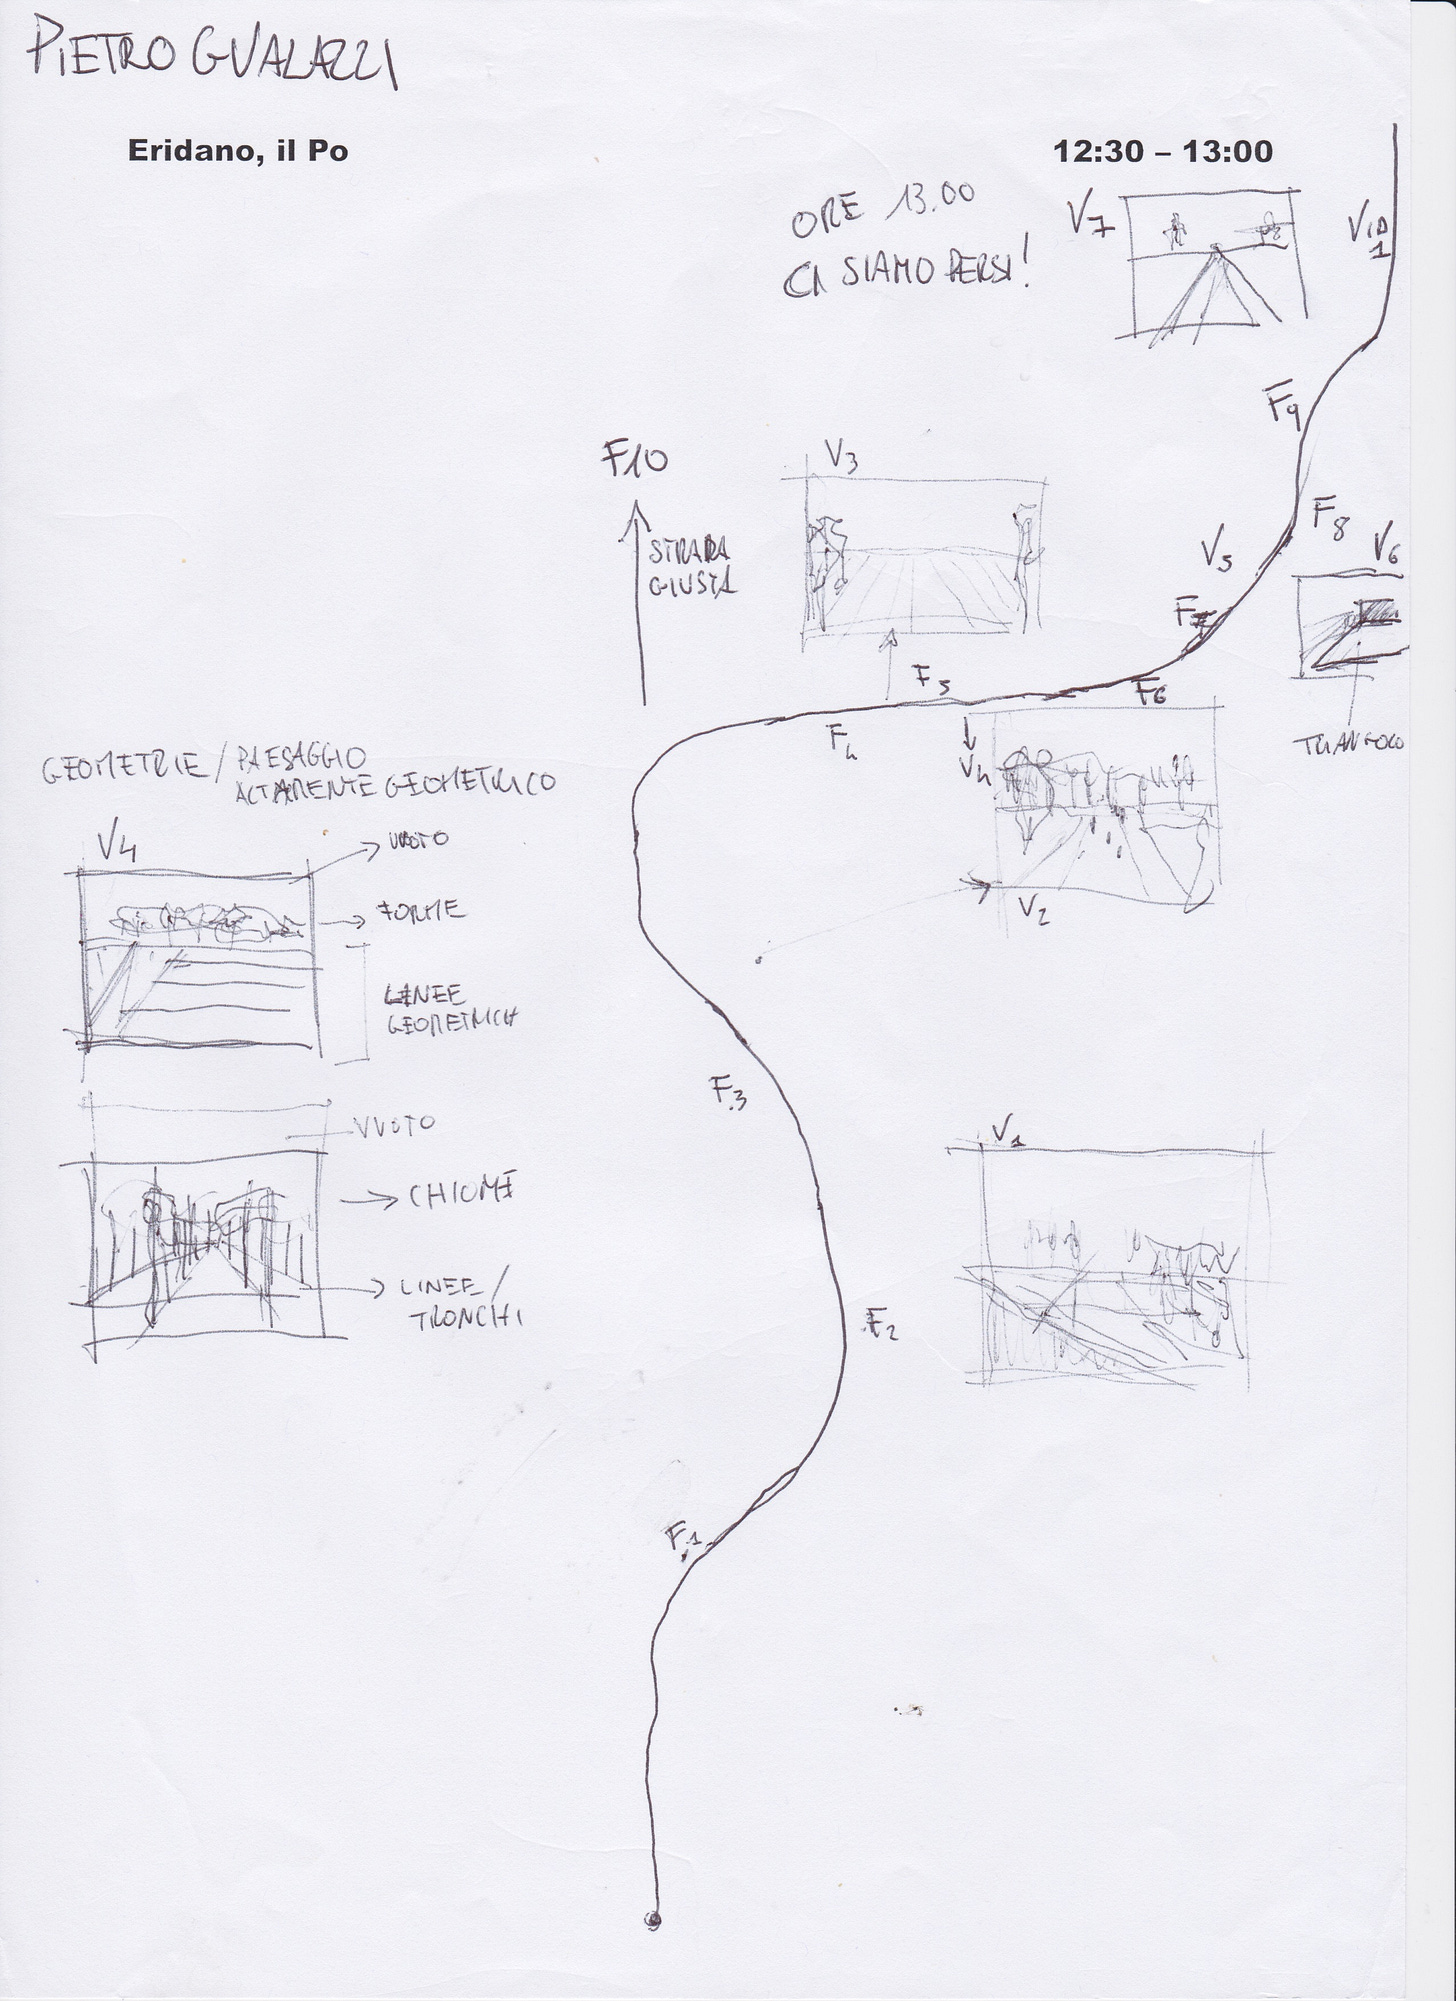 PIETRO GUALAZZI
Eridano, il Po
12:30 – 13:00
ORE 13.00
CI SIAMO PERSI!
V7
VID
1
F9
F10
STRADA
GIUSTA
V3
F8
V5
V6
F7
F5
F6
F4
TRIANGOLO
V4
V2
GEOMETRIE / PAESAGGIO
ALTAMENTE GEOMETRICO
V4
VUOTO
FORME
LINEE
GEOMETRICH
F3
VUOTO
CHIOME
LINEE /
TRONCHI
V1
F2
F1